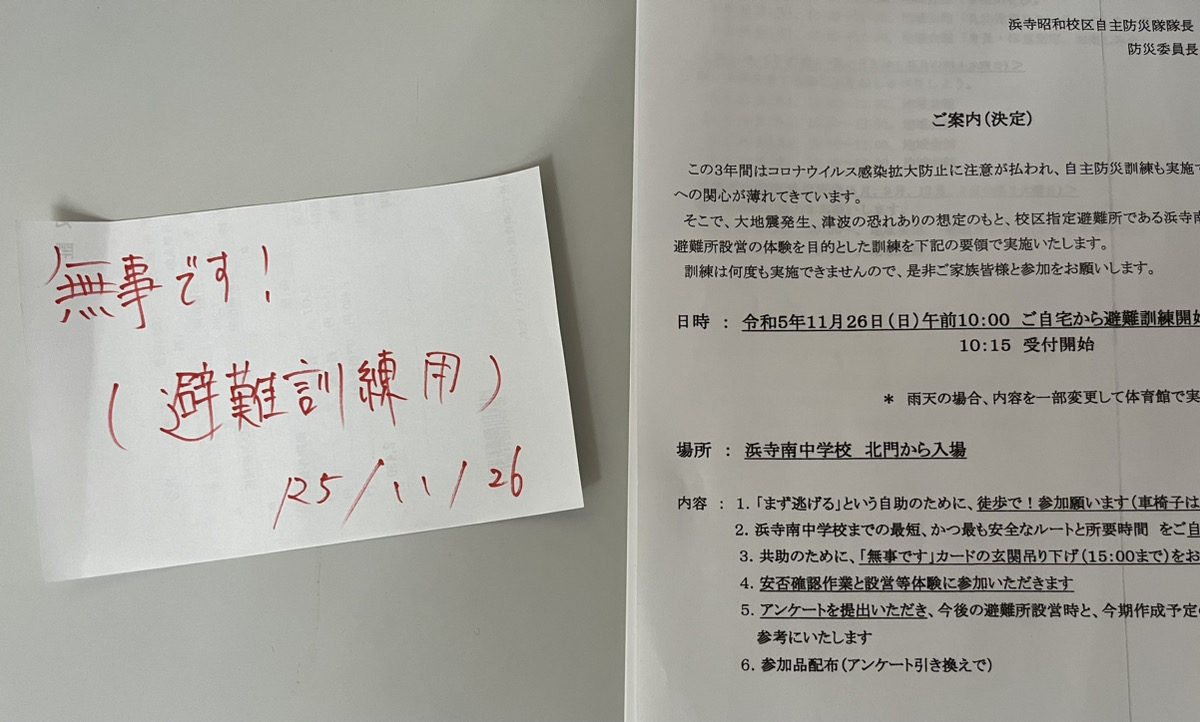 無事です!
(避難訓練用)
R5/11/26
浜寺昭和校区自主防災隊隊長
防災委員長
ご案内(決定)
この3年間はコロナウイルス感染拡大防止に注意が払われ、自主防災訓練も実施で
への関心が薄れてきています。
そこで、大地震発生、津波の恐れありの想定のもと、校区指定避難所である浜寺南
避難所設営の体験を目的とした訓練を下記の要領で実施いたします。
訓練は何度も実施できませんので、是非ご家族皆様と参加をお願いします。
日時 : 令和5年11月26日(日)午前10:00 ご自宅から避難訓練開始
10:15 受付開始
* 雨天の場合、内容を一部変更して体育館で実
場所 : 浜寺南中学校 北門から入場
内容 : 1.「まず逃げる」という自助のために、徒歩で!参加願います(車椅子は
2. 浜寺南中学校までの最短、かつ最も安全なルートと所要時間 をご自
3. 共助のために、「無事です」カードの玄関吊り下げ(15:00まで)をお
4. 安否確認作業と設営等体験に参加いただきます
5. アンケートを提出いただき、今後の避難所設営時と、今期作成予定の
参考にいたします
6. 参加品配布(アンケート引き換えで)